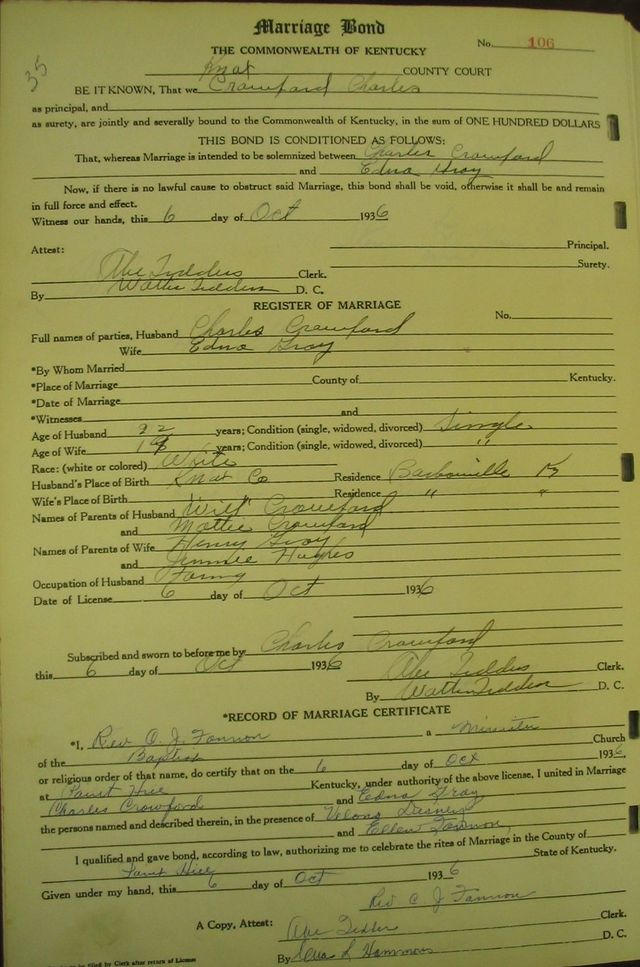 Marriage Bond
THE COMMONWEALTH OF KENTUCKY
No. 106
35
Knox COUNTY COURT
BE IT KNOWN, That we Crawford Charles
as principal, and
as surety, are jointly and severally bound to the Commonwealth of Kentucky, in the sum of ONE HUNDRED DOLLARS
THIS BOND IS CONDITIONED AS FOLLOWS:
That, whereas Marriage is intended to be solemnized between Charles Crawford
and Edna Gray
Now, if there is no lawful cause to obstruct said Marriage, this bond shall be void, otherwise it shall be and remain
in full force and effect.
Witness our hands, this 6 day of Oct 1936
Principal.
Attest:
Surety.
Abe Tedders Clerk.
By Walter Tedders D. C.
REGISTER OF MARRIAGE
No.
Full names of parties, Husband Charles Crawford
Wife Edna Gray
*By Whom Married
*Place of Marriage County of Kentucky.
*Date of Marriage
*Witnesses and
Age of Husband 22 years; Condition (single, widowed, divorced) Single
Age of Wife years; Condition (single, widowed, divorced) "
Race: (white or colored) White
Husband's Place of Birth Knox Co Residence Barbourville Ky
Wife's Place of Birth Residence " "
Names of Parents of Husband Will Crawford
and Mattie Crawford
Names of Parents of Wife Henry Gray
and Jimmie Hughes
Occupation of Husband
Date of License 6 day of Oct 1936
Subscribed and sworn to before me by Charles Crawford
this 6 day of Oct 1936 Abe Tedders Clerk.
By Walter Tedders D. C.
*RECORD OF MARRIAGE CERTIFICATE
*I, Rev C. J. Fannon a Minister
of the Baptist Church
or religious order of that name, do certify that on the 6 day of Oct 1936,
at Kentucky, under authority of the above license, I united in Marriage
Charles Crawford and Edna Gray
the persons named and described therein, in the presence of
and Ellen Fannon
I qualified and gave bond, according to law, authorizing me to celebrate the rites of Marriage in the County of
State of Kentucky.
Given under my hand, this 6 day of Oct 1936
Rev C J Fannon
A Copy, Attest: Abe Tedders Clerk.
By L Hammons D. C.
be filed by Clerk after return of License